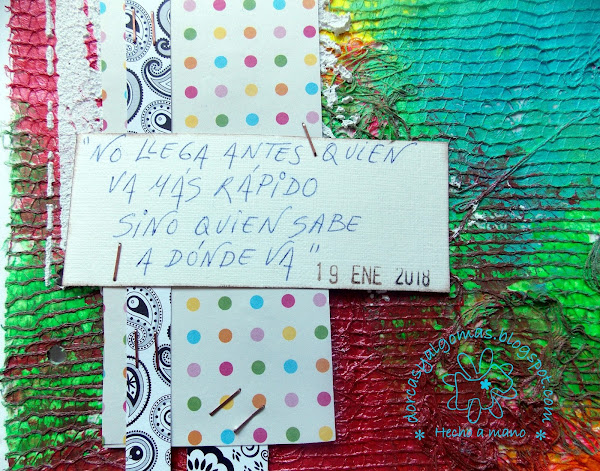 "NO LLEGA ANTES QUIEN
VA MÁS RÁPIDO
SINO QUIEN SABE
A DÓNDE VA"
19 ENE 2018
dorcasyalgomas.blogspot.com
* Hecho a mano. *